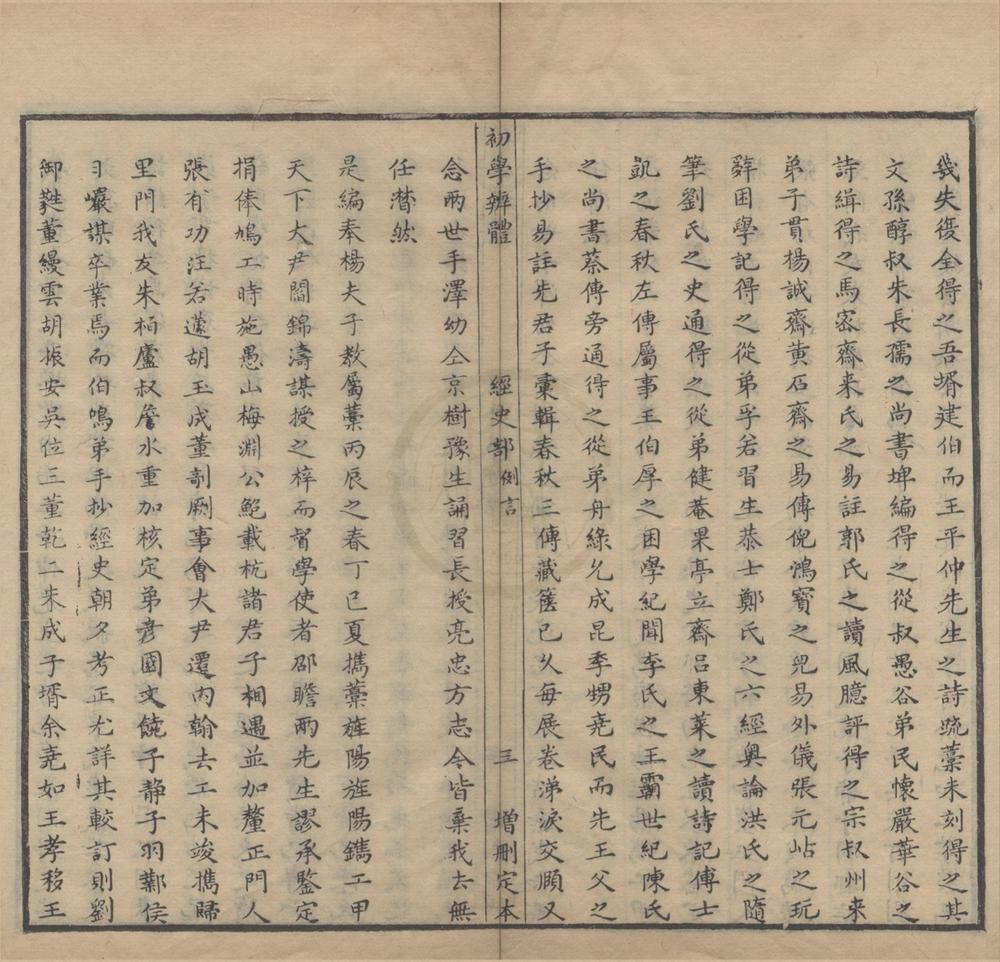 幾失復全得之吾壻建伯而王平仲先生之詩疏藁未刻得之其
文孫醇叔朱長孺之尚書埤編得之從叔愚谷弟民懷嚴華谷之
詩緝得之馬宻齋来氏之易註郭氏之讀風臆評得之宗叔州来
弟子貫楊誠齋黄石齋之易傳倪鴻寳之兒易外儀張元岾之玩
辭困學記得之從弟孚若習生恭士鄭氏之六經奥論洪氏之隨
筆劉氏之史通得之從弟健菴果亭立齋吕東萊之讀詩記傅士
凱之春秋左傳屬事王伯厚之困學紀聞李氏之王霸世紀陳氏
之尚書蔡傳旁通得之從弟舟綠允成昆季甥尭民而先王父之
手抄易註先君子彚輯春秋三傳藏篋已久每展卷涕淚交頤又
初學辨體 經史部例言 三 增刪定本
念兩世手澤幼仝京樹豫生誦習長授亮忠方志今皆棄我去無
任潸然
是編奉楊夫子教屬藁丙辰之春丁巳夏擕藁旌陽旌陽鐫工甲
天下大尹閻錦濤謀授之梓而督學使者邵瞻兩先生謬承鑒定
捐俸鳩工時施愚山梅淵公鮑載杭諸君子相遇並加釐正門人
張有功汪若邃胡玉成董剞劂事會大尹還内翰去工未竣擕歸
里門我友朱柏廬叔詹水重加核定弟彦國文饒子静子羽鄴侯
習巖謀卒業焉而伯鳴弟手抄經史朝夕考正尤詳其較訂則劉
御蕤董縵雲胡振安吳位三董乾二朱成子壻余尭如王孝移王